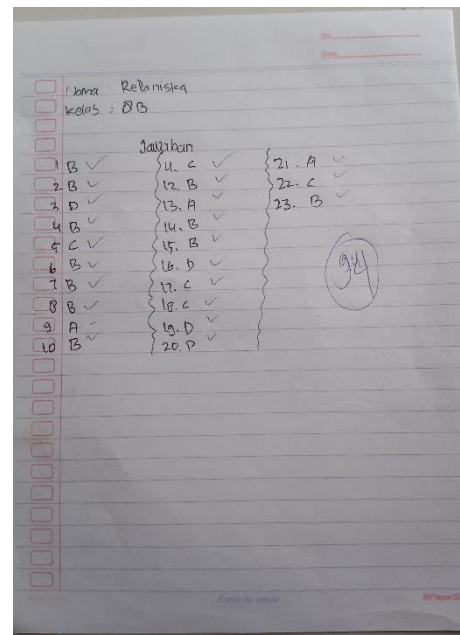 No.
Date
Nama Refaniska
Kelas : 8B
Jawaban
1 B ✓
2 B ✓
3 D ✓
4 B ✓
5 C ✓
6 B ✓
7 B ✓
8 B ✓
9 A -
10 B ✓
11. C ✓
12. B ✓
13. A ✓
14. B ✓
15. B ✓
16. D ✓
17. C ✓
18. C ✓
19. D ✓
20. D ✓
21. A ✓
22. C ✓
23. B ✓
94